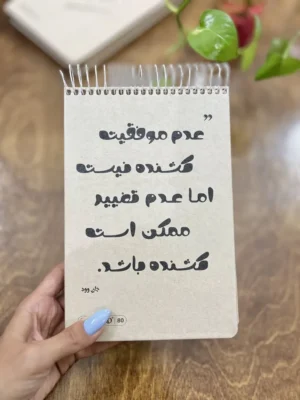 ”
عدم موفقیت
کشنده نیست
اما عدم تغییر
ممکن است
کشنده باشد.
جان وود